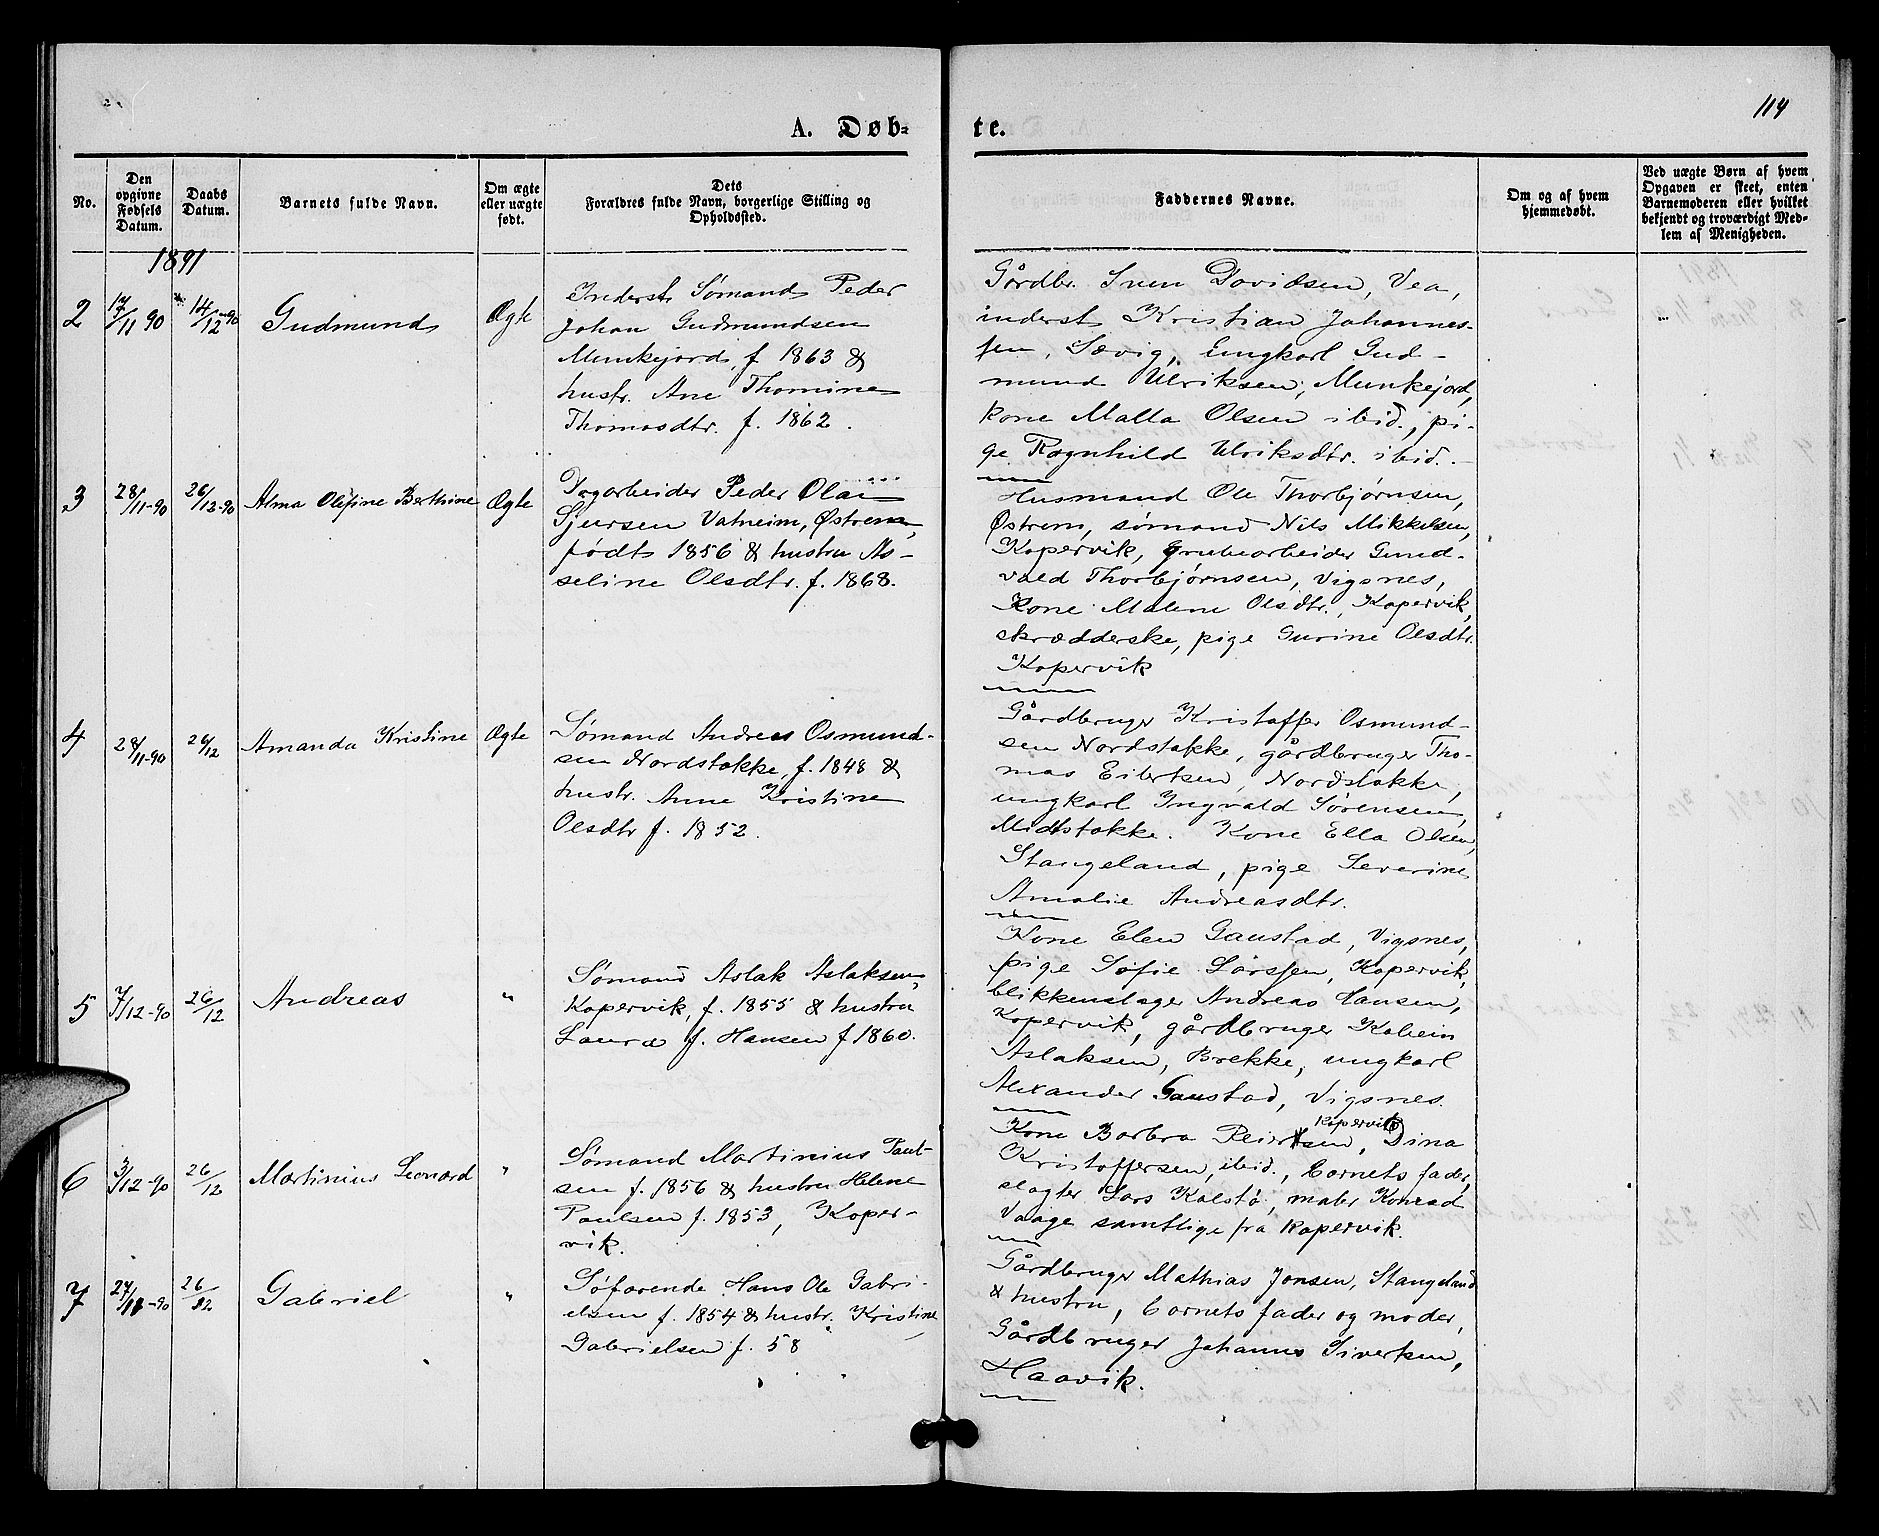 114
A. Døb-
te.
No.
Den
opgivne
Fødsels
Datum.
Daabs
Datum.
Barnets fulde Navn.
Om ægte
eller uægte
født.
Dets
Forældres fulde Navn, borgerlige Stilling og
Opholdssted.
Faddernes Navne.
Om og af hvem
hjemmedøbt.
Ved uægte Børn af hvem
Opgaven er skeet, enten
Barnemoderen eller hvilket
bekjendt og troværdigt Med-
lem af Menigheden.
1891
2 17/11 90 14/12-90 Gudmund Ægte
Inderst Sømand Peder
Johan Gudmundsen
Munkejord, f 1863 &
hustr. Ane Thomine
Thomasdtr. f. 1862.
Gårdbr. Sven Davidsen, Vea,
inderst Kristian Johannes-
sen, Sævig, Ungkarl Gud-
mund Ulriksen, Munkejord,
kone Malla Olsen ibid., pi-
ge Ragnhild Ulriksdtr. ibid.
3 28/11-90 26/12-90 Alma Olefine Berthine Ægte
Dagarbeider Peder Olai
Sjursen Vatneim, Østrem,
født 1856 & hustru As-
seline Olsdtr. f. 1868.
Husmand Ole Thorbjørnsen,
Østrem, sømand Nils Mikkelsen,
Kopervik, grubearbeider Gund-
vald Thorbjørnsen, Vigsnes,
Kone Malene Olsdtr., Kopervik,
skrædderske, pige Gurine Olsdtr.
Kopervik
4 28/11-90 26/12 Amanda Kristine Ægte
Sømand Andreas Osmund-
sen Nordstokke, f. 1848 &
hustr. Anne Kristine
Olsdtr f. 1852.
Gårdbruger Kristoffer Osmund-
sen Nordstokke, gårdbruger Tho-
mas Eilertsen, Nordstokke,
ungkarl Ingvald Sørensen,
Midtstokke. Kone Ella Olsen,
Stangeland, pige Severine
Amalie Andreasdtr.
5 7/12-90 26/12 Andreas "
Sømand Aslak Aslaksen,
Kopervik, f. 1855 & hustru
Laura f. Hansen f 1860.
Kone Elen Gaustad, Vigsnes,
pige Sofie Larssen, Kopervik,
blikkenslager Andreas Hansen,
Kopervik, gårdbruger Kolbein
Aslaksen, Brekke, ungkarl
Alexander Gaustad, Vigsnes.
6 3/12-90 26/12 Martinius Leonard "
Sømand Martinius Paul-
sen f. 1856 & hustru Helene
Paulsen f. 1853, Koper-
vik.
Kopervik
Kone Barbra Peiersen, Dina
Kristoffersen, ibid., barnets fader,
slagter Lars Kalstø, maler Konrad
Vaage samtlige fra Kopervik.
7 27/11-90 26/12 Gabriel "
Søfarende Hans Ole Gabri-
elsen f. 1854 & hustr. Kristine
Gabrielsen f. 58
Gårdbruger Mathias Jonsen, Stangeland
& hustru, barnets fader og moder,
Gårdbruger Johannes Sivertsen,
Haavik.